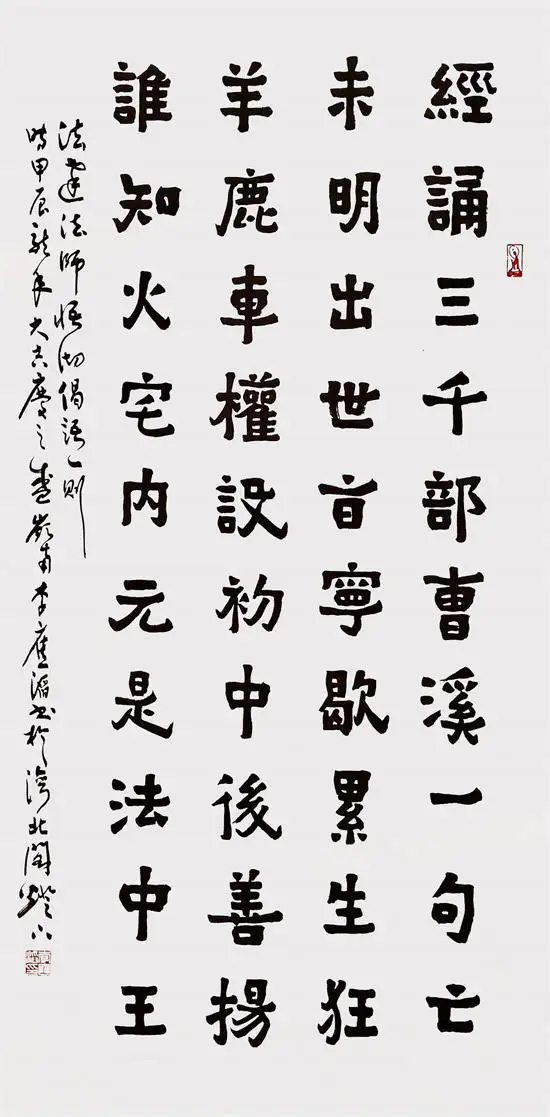 經誦三千部曹溪一句亡
未明出世旨寧歇累生狂
羊鹿車權設初中後善揚
誰知火宅内元是法中王
法達法師悟偈語一則
時甲辰龍年大吉慶之嶺南李應滔書於北閣燈下